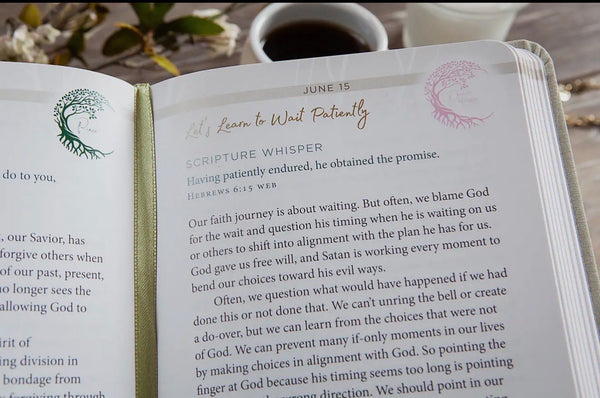 do to you,
, our Savior, has
forgive others when
of our past, present,
no longer sees the
allowing God to
irit of
ing division in
bondage from
forgiving through
JUNE 15
Let's Learn to Wait Patiently
SCRIPTURE WHISPER
Having patiently endured, he obtained the promise.
HEBREWS 6:15 WEB
Our faith journey is about waiting. But often, we blame God
for the wait and question his timing when he is waiting on us
or others to shift into alignment with the plan he has for us.
God gave us free will, and Satan is working every moment to
bend our choices toward his evil ways.
Often, we question what would have happened if we had
done this or not done that. We can't unring the bell or create
a do-over, but we can learn from the choices that were not
of God. We can prevent many if-only moments in our lives
by making choices in alignment with God. So pointing the
finger at God because his timing seems too long is pointing
wrong direction. We should point in our